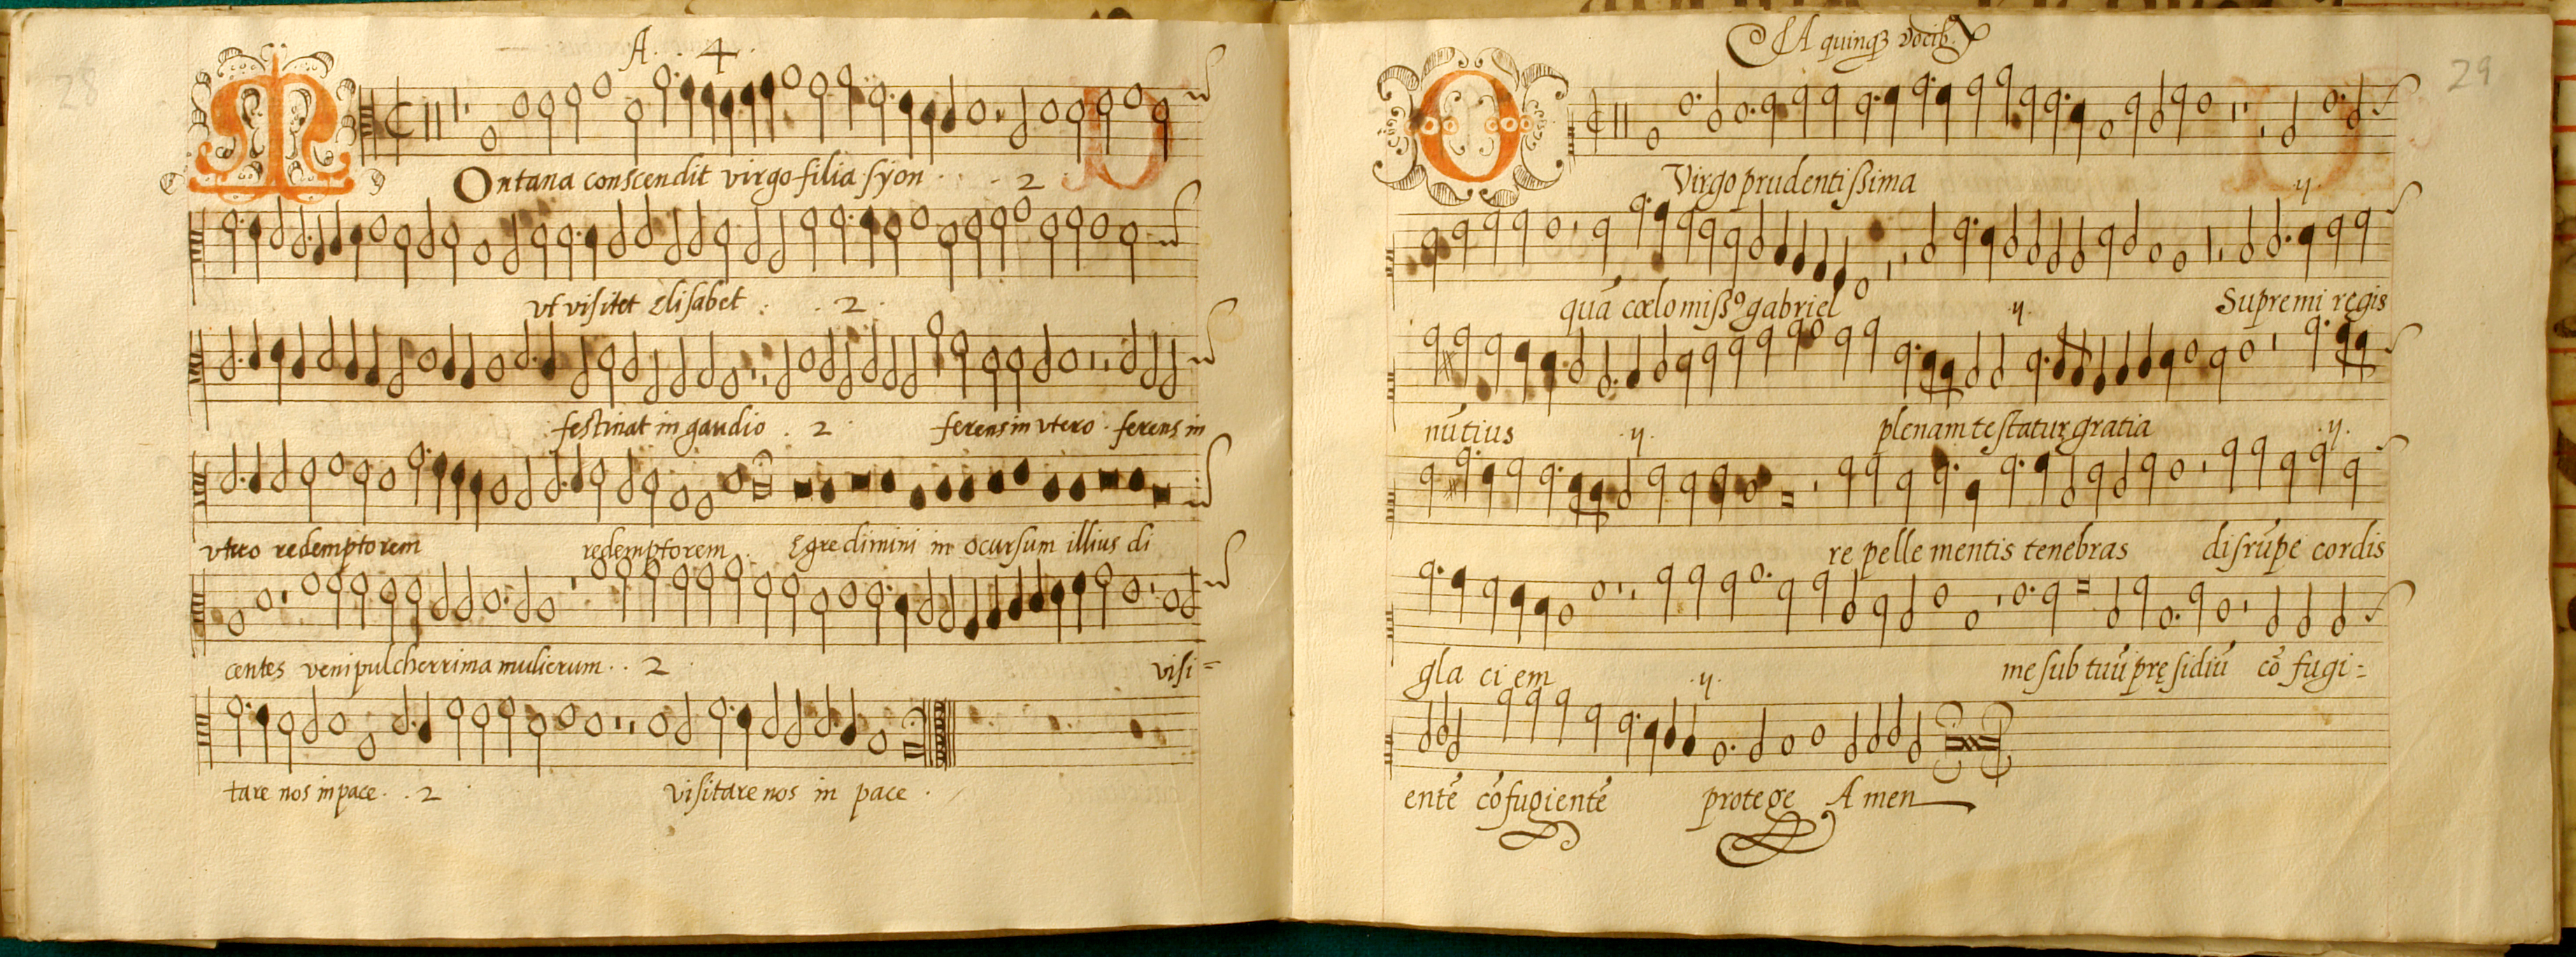 28
A. 4.
MOntana conscendit virgo filia syon . . 2
vt visitet Elisabet : . 2 .
festinat in gaudio . 2 . ferens in vtero . ferens in
vtero redemptorem redemptorem . Egredimini in ocursum illius di
centes veni pulcherrima mulierum . . 2 . visi=
tare nos in pace . . 2 . visitare nos in pace .
29
A quinqȝ vocib.
O Virgo prudentißima .y.
quā cœlo mißꝰ gabriel .y. Supremi regis
nūtius .y. plenam testatur gratia .y.
re pelle mentis tenebras disrūpe cordis
gla ci em .y. me sub tuū pręsidiū cō fugi=
entē cōfugientē protege Amen